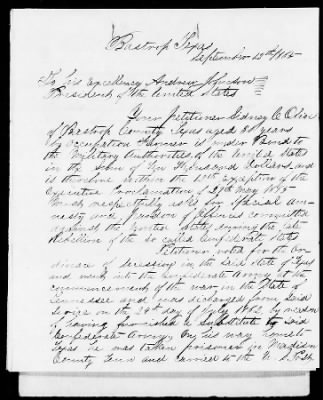 Bastrop Texas
September 13th 1865
To his Excellency Andrew Johnson
President of the United States
Your Petitioner Sidney C
of Bastrop County Texas aged 38 years
by occupation Farmer is under Bond to
the Military Authorities of the United States
in the sum of Ten Thousand Dollars and
is therefore within the Exception of the
Executive Proclamation of 29th May 1865
respectfully asks for Special Am-
nesty and Pardon of offences committed
against the United States during the late
Rebellion of the so called Confederate States
Petitioner voted for the or-
dinance of Secession in the said State of Texas
and went into the Confederate Army at the
commencement of the war in the State of
Tennessee and was discharged from said
Service on the 29th day of July 1862, by reason
of having furnished a Substitute to said
Confederate Army. On his way home to
Texas he was taken prisoner in Madison
County Tenn and carried to the U. S.